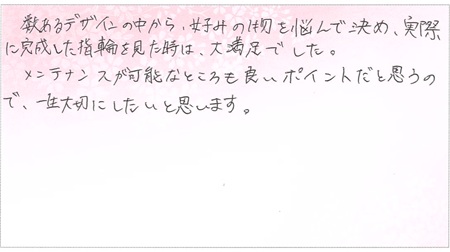 数あるデザインの中から、好みの物を悩んで決め、実際
に完成した指輪を見た時は、大満足でした。
メンテナンスが可能なところも良いポイントだと思うの
で、一生大切にしたいと思います。